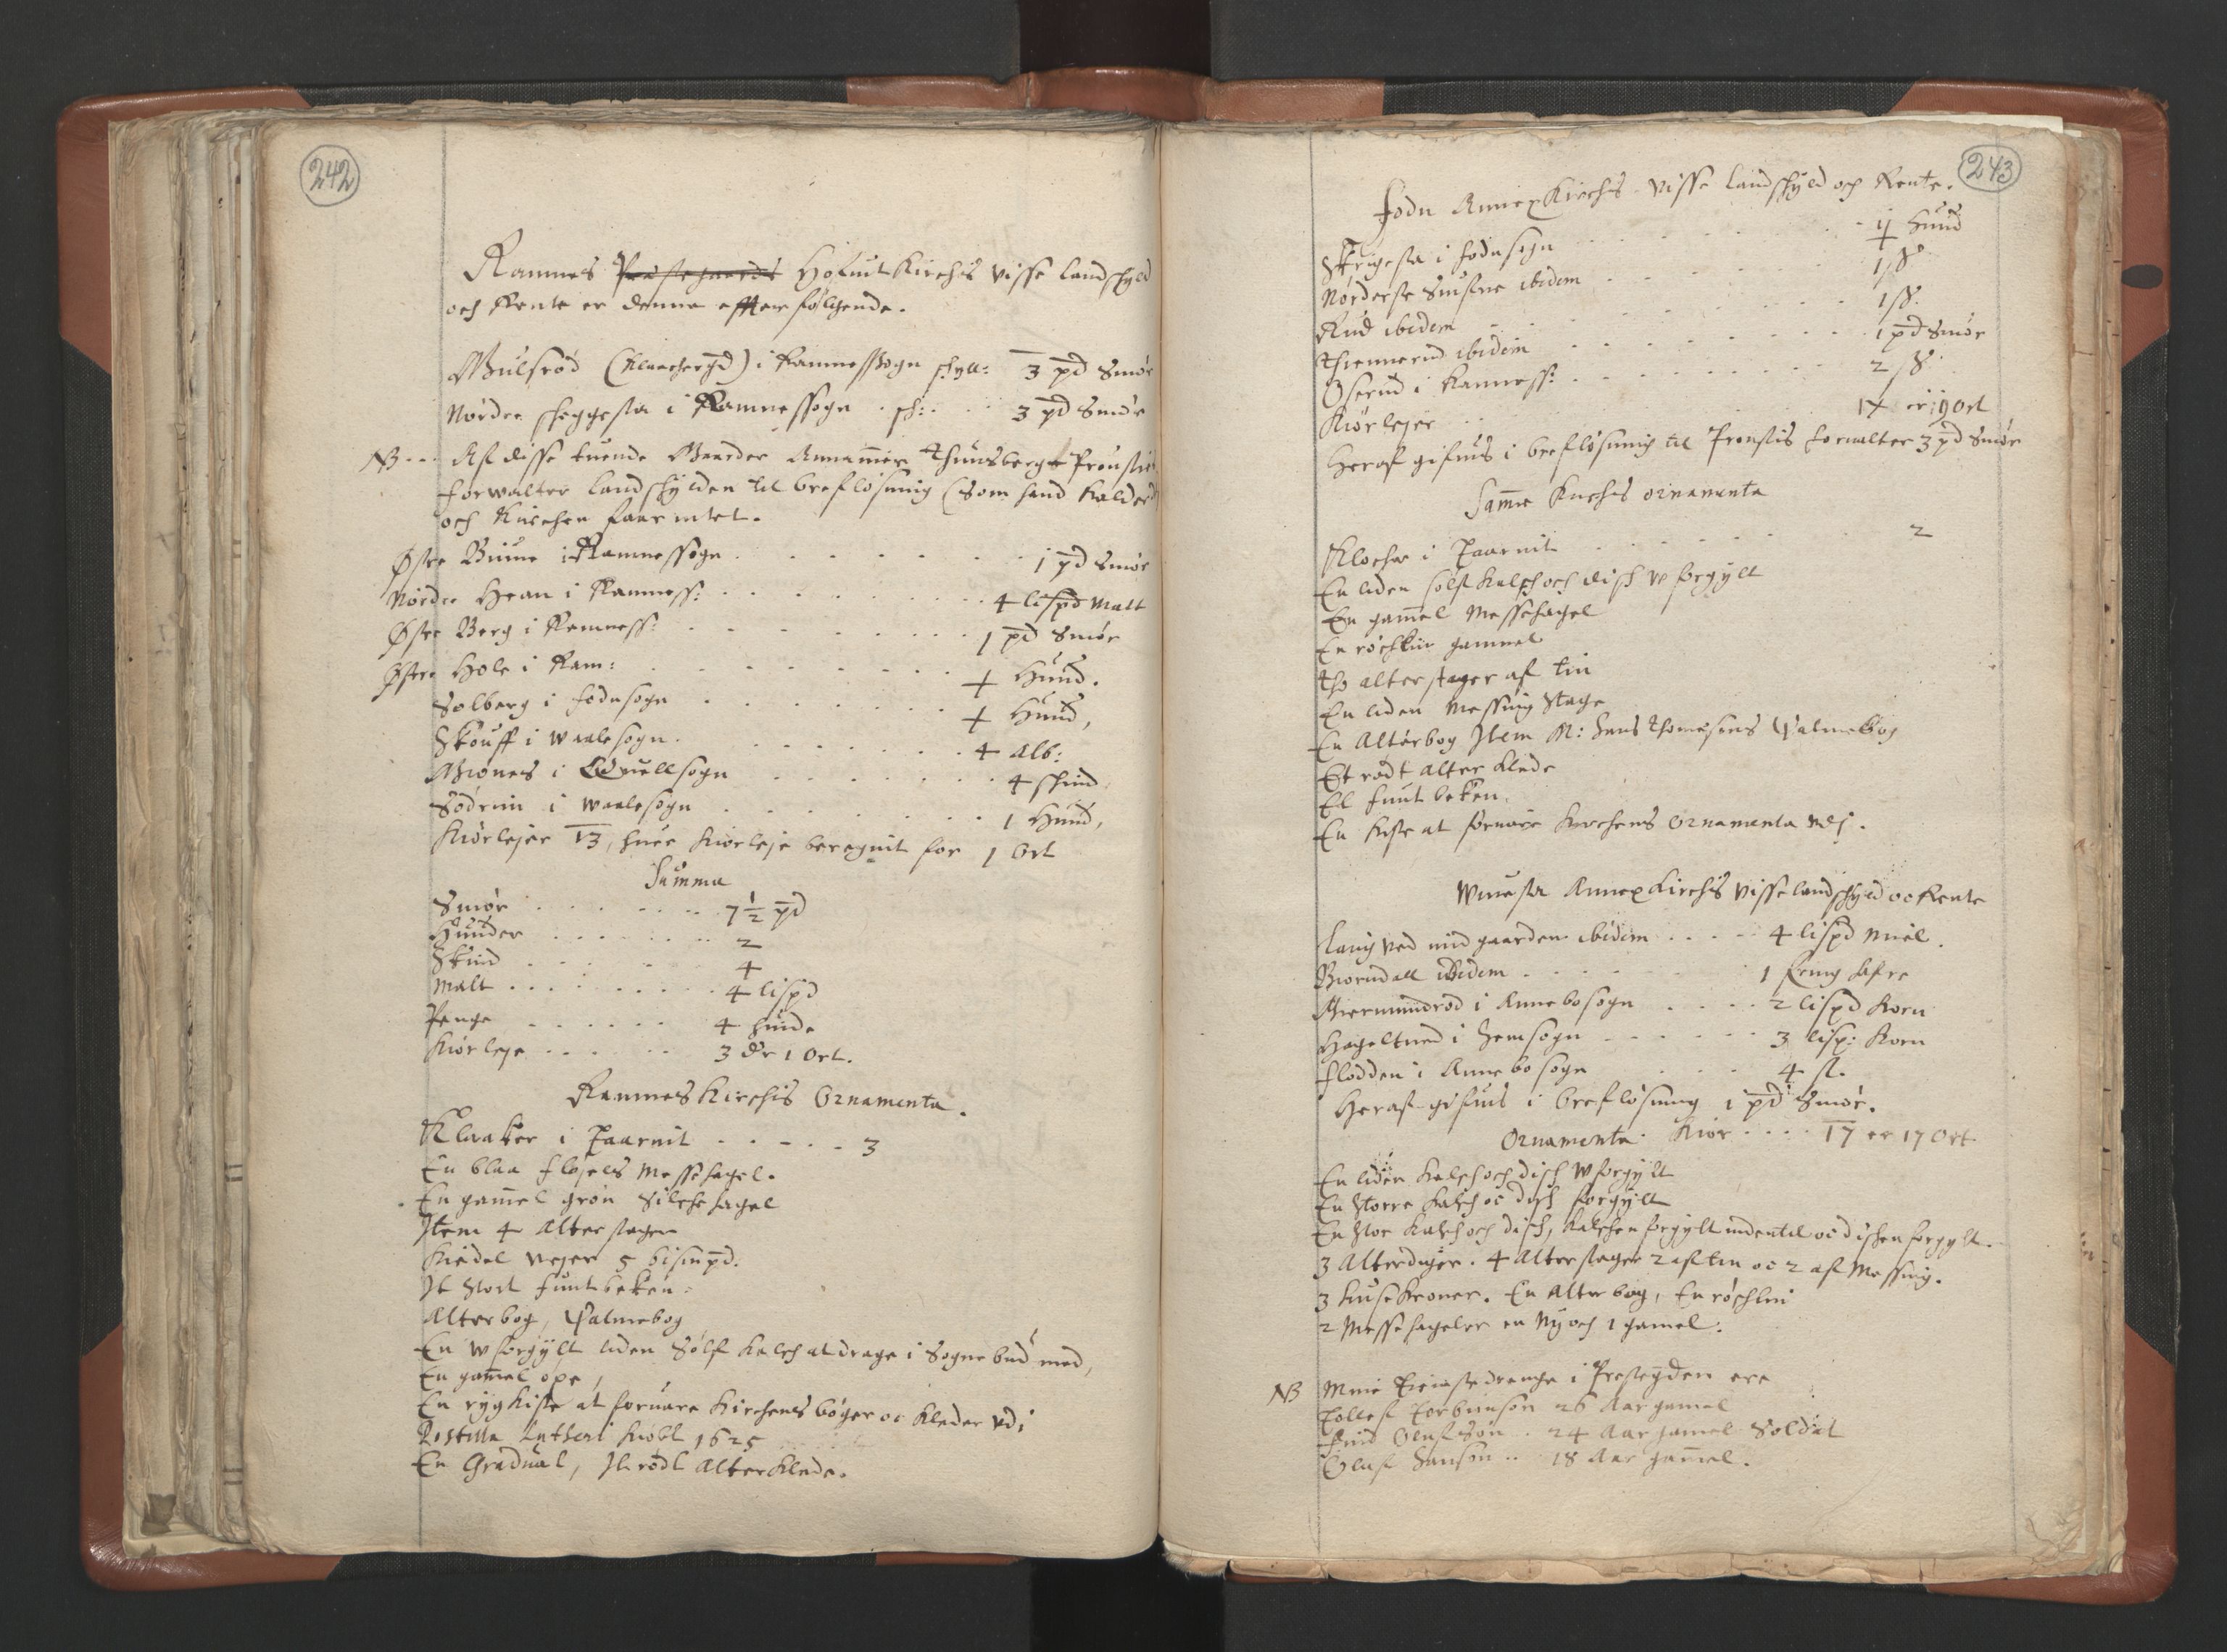 242
Ramnes Prestegaards Hofuit Kirchis visse landschyld
och Rente er denne effterfølgende.
Bulsrød (Klaachergrd) i Ramnessogn schyll: 3 pd Smør
Nørdre skeggesta i Ramnessogn sch: 3 pd Smør
NB Aff disse tuende Gaarder Annammer Thunsbergs Proustis
forwalter landschylden til breflösning (som hand kalder
och Kirchen faar intet.
Østre Biune i Ramnessogn 1 pd Smør
Nørdre Hean i Ramness: 4 lispd Malt
Østre Berg i Ramness: 1 pd Smør
Østre Hole i Ram: + Huud.
Solberg i Fodnsogn + Huud,
Skouff i Waalesogn 4 alb:
Biønnes i Quellsogn 4 skind
Södrim i Waalesogn 1 Huud,
Kiörlejer 13, huer Kiörleje beregnit for 1 Ort
Summa
Smør 7 1/2 pd
Huuder 2
Skind 4
Malt 4 lispd
Penge 4 huide
Kiörleje 3 dr 1 Ort.
Ramnes Kirchis Ornamenta.
Klaaker i Taarnit 3
En blaa fløjels Messehagel.
En gammel grøn Silchehagel
Item 4 Alterstager
Kiedel vejer 5 bismpd.
It stort funtbeken
Alterbog, Psalmebog
En wforgylt liden Sølf Kalch at drage i Sognebud med,
En gammel ope,
En rygkiste at foruare Kirchens bøger oc Kleder vdi
Postilla Lutheri Kiøbt 1625
En Gradual, It rødt Alterklede.
243
Fodn Annex Kirchis visse landschyld och Rente.
Skeigesta i Fodnsogn 1/2 Huud
Nørderste Smufne ibidem 1 ß
Rud ibidem 1 ß.
Thiennerud ibidem 1 pd Smør
Oserud i Ramness: 2 ß
Kiørlejer 14 er 14 Ort
Heraf gifuis i breflösning til Proustis forualter 3 pd Smør
Samme Kirchis ornamenta
Klocher i Taarnit 2
En liden sølf Kalch och disch vforgyllt
En gammel Messehagel
En röchlin gammel
Tho alterstager af tin
En liden Messing Stage
En Alterbog Item M: Hans Thomesøns Psalmebog
Et rødt alterklede
Et funtbeken.
En Kiste at foruare Kirchens Ornamenta vdj.
Winesta Annex Kirchis visse landschyld oc Rente
Lang ved nid gaarden ibidem 4 lispd Miel.
Biørndall ibidem 1 fring hafre
Giermundrød i Annebosogn 2 lispd Korn
Hageltued i Semsogn 3 lisp: Korn
Flodden i Annebosogn 4 ß.
Heraf gifuis i breflösning 1 pd Smør.
Ornamenta. Kiør 17 er 17 Ort
En liden Kalch och disch wforgylt
En Større Kalch oc disch forgylt
En Stor Kalch och disch, Kalchen forgylt indentil oc dischen forgylt.
3 Alterduger. 4 Alterstager 2 af tin oc 2 af Messing.
3 Liusekroner. En Alterbog, En röchlin
2 Messehageler en Ny och 1 gamel.
NB Mine Tienistedrenge i Prestegrden ere
Tollef Torbiørnsøn 26 Aar gamel
Find Olufsøn 24 Aar gamel Soldat
Oluf Hansøn 18 Aar gammel.